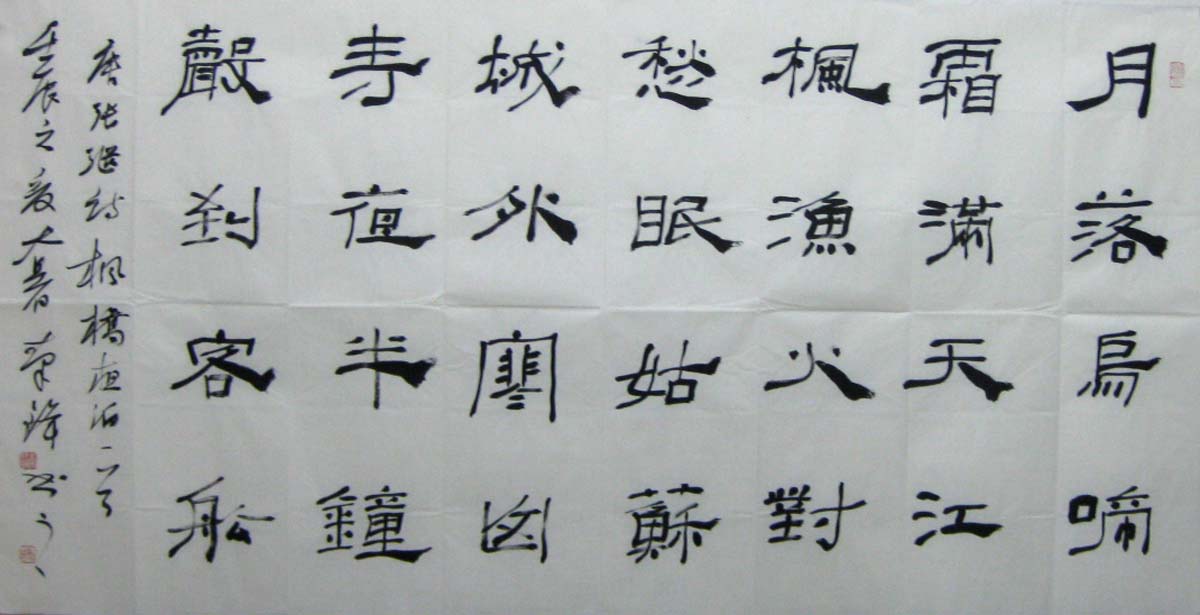 月落烏啼
霜滿天江
楓漁火對
愁眠姑蘇
城外寒山
寺夜半鐘
聲到客舩
唐张继诗枫橋夜泊一首
壬辰之夏大暑